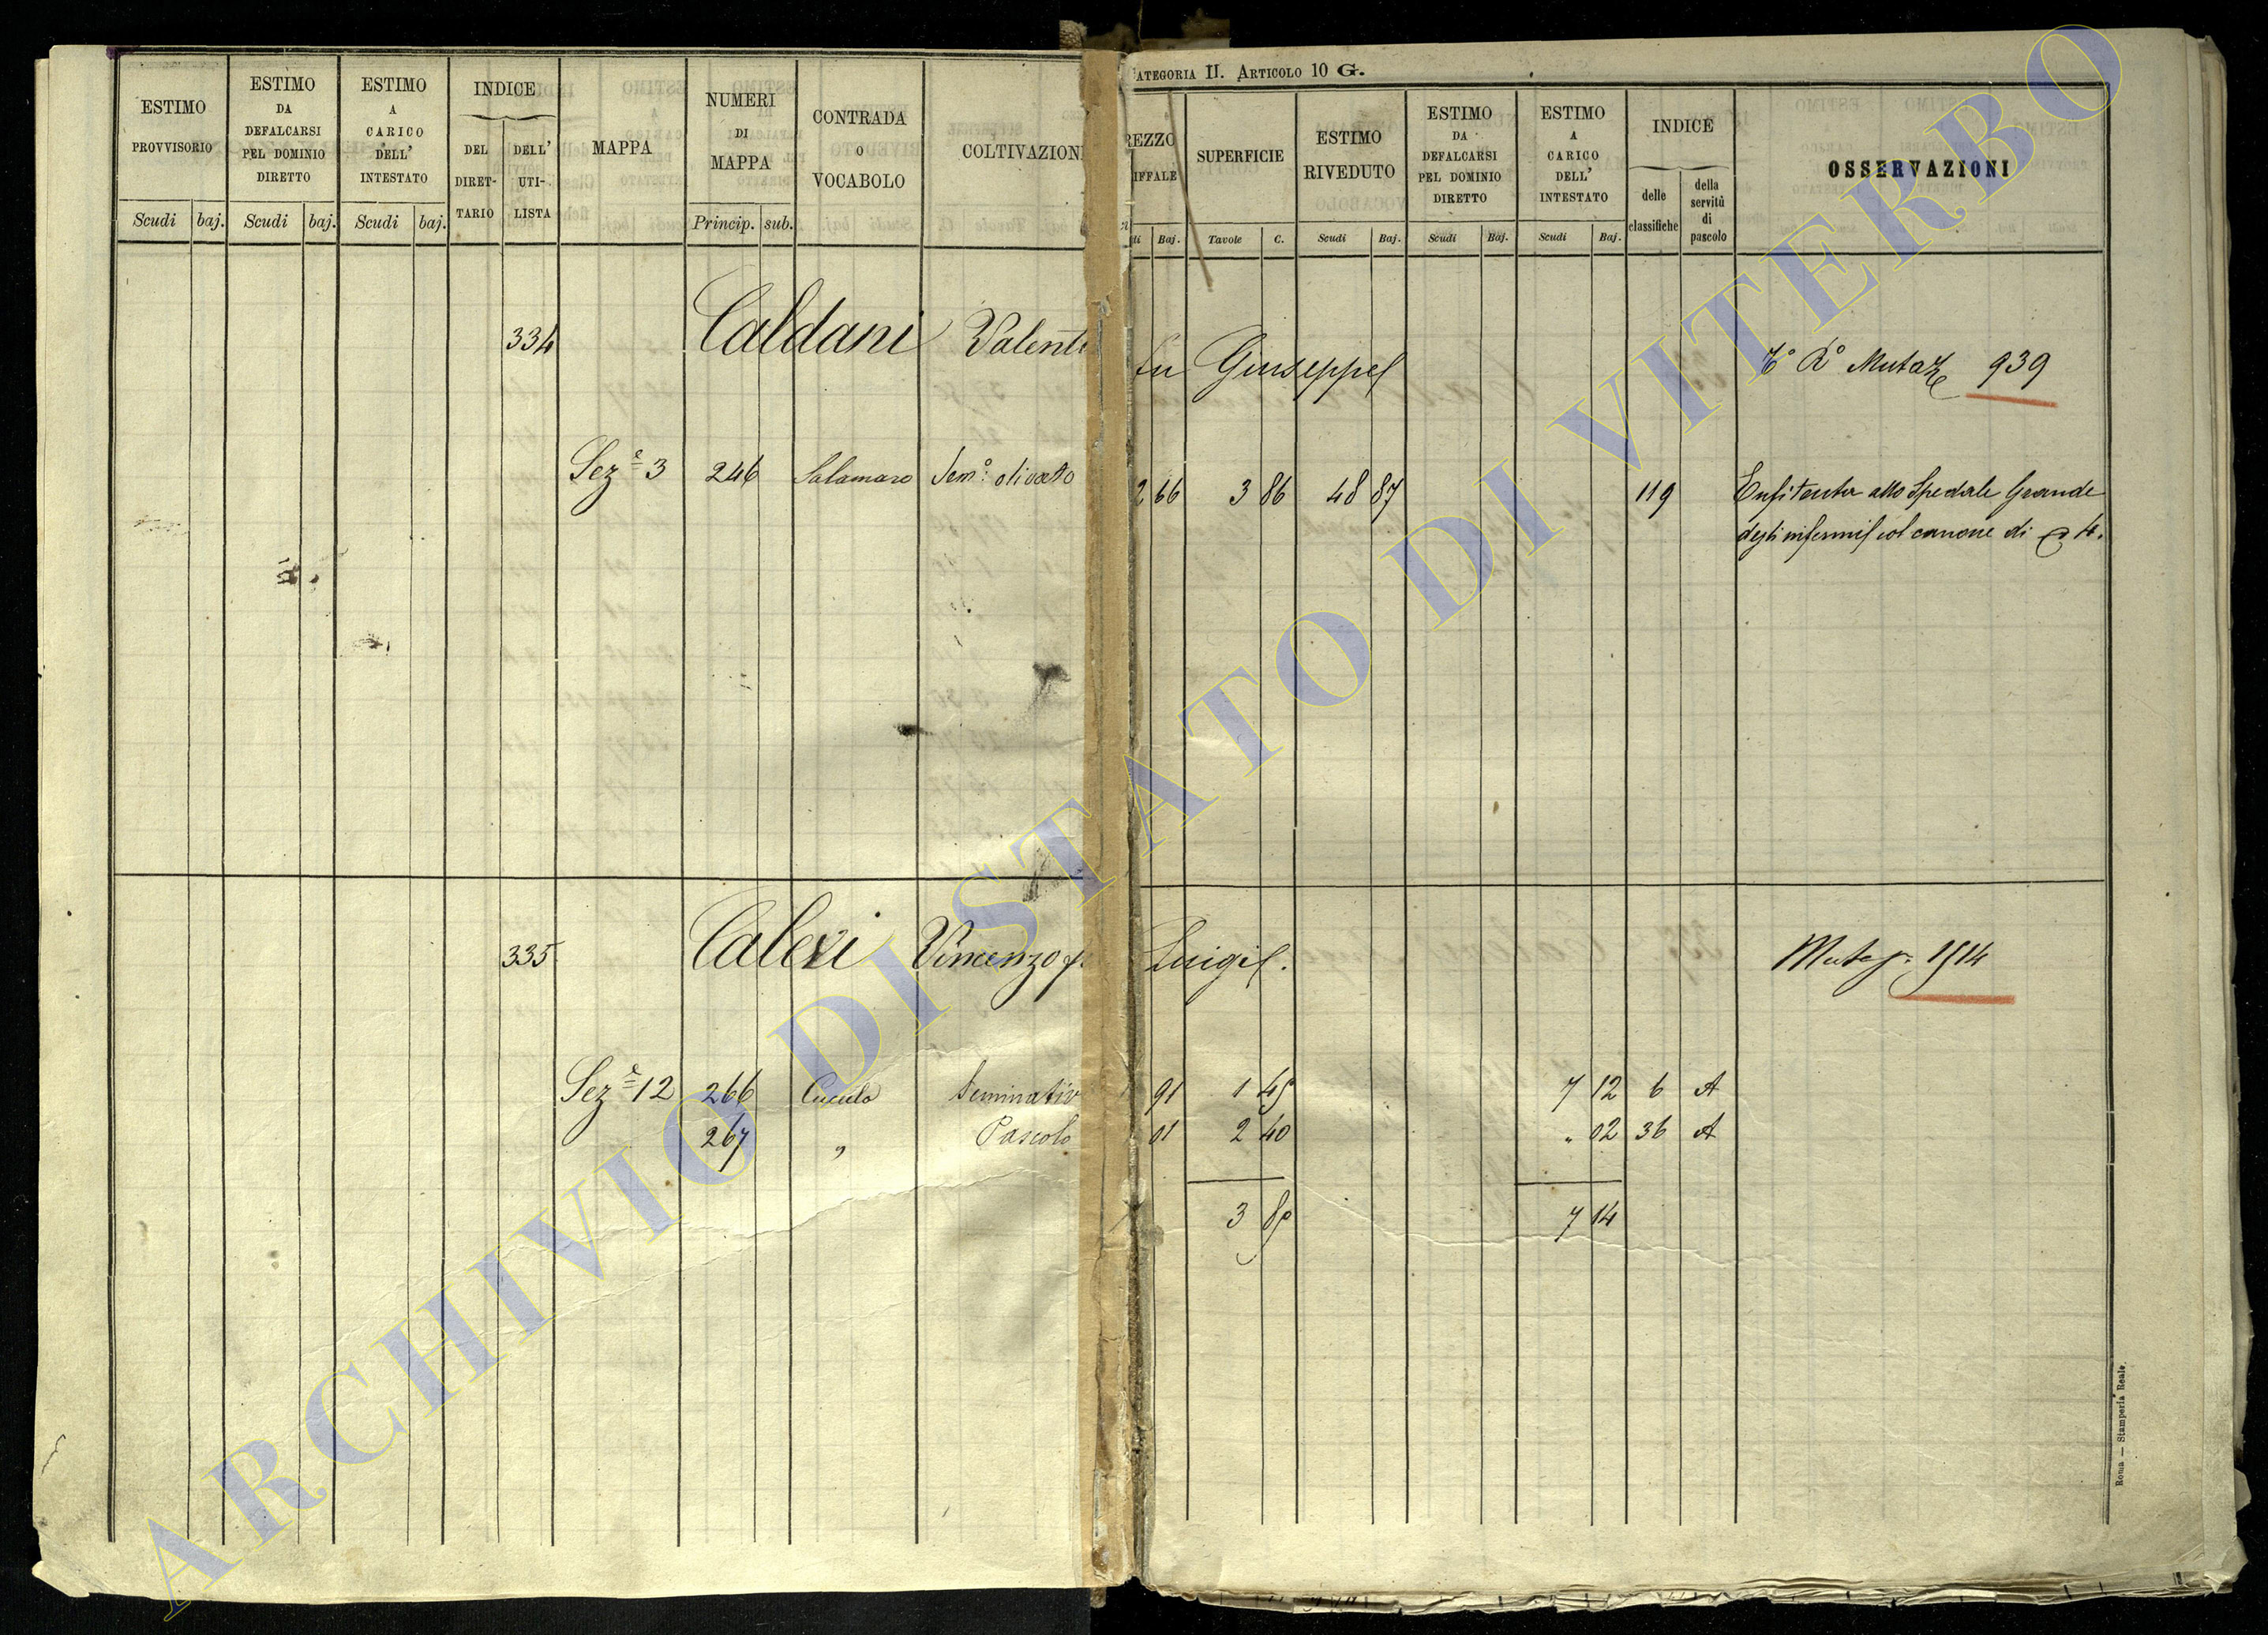 ATEGORIA II. ARTICOLO 10 G.
ESTIMO PROVVISORIO
Scudi baj.
ESTIMO DA DEFALCARSI PEL DOMINIO DIRETTO
Scudi baj.
ESTIMO A CARICO DELL' INTESTATO
Scudi baj.
INDICE
DEL DIRET- TARIO
DELL' UTI- LISTA
MAPPA
NUMERI DI MAPPA
Princip. sub.
CONTRADA O VOCABOLO
COLTIVAZION
REZZO IFFALE
di Baj.
SUPERFICIE
Tavole C.
ESTIMO RIVEDUTO
Scudi Baj.
ESTIMO DA DEFALCARSI PEL DOMINIO DIRETTO
Scudi Baj.
ESTIMO A CARICO DELL' INTESTATO
Scudi Baj.
INDICE
delle classifiche
della servitù di pascolo
OSSERVAZIONI
334 Caldani Valenti fu Giuseppe 939
Sez.e 3 246 Salamaro Sem.o olivato 2 66 3 86 48 87 119 Enfiteuta allo Spedale Grande
degli infermi col canone di 4.
335 Calevi Vincenzo Luigi. 1514
Sez.e 12 266 Cucula Seminativ 91 1 45 7 12 6 A
267 " Pascolo 01 2 40 " 02 36 A
3 85 7 14
Roma — Stamperia Reale.
ARCHIVIO DI STATO DI VITERBO